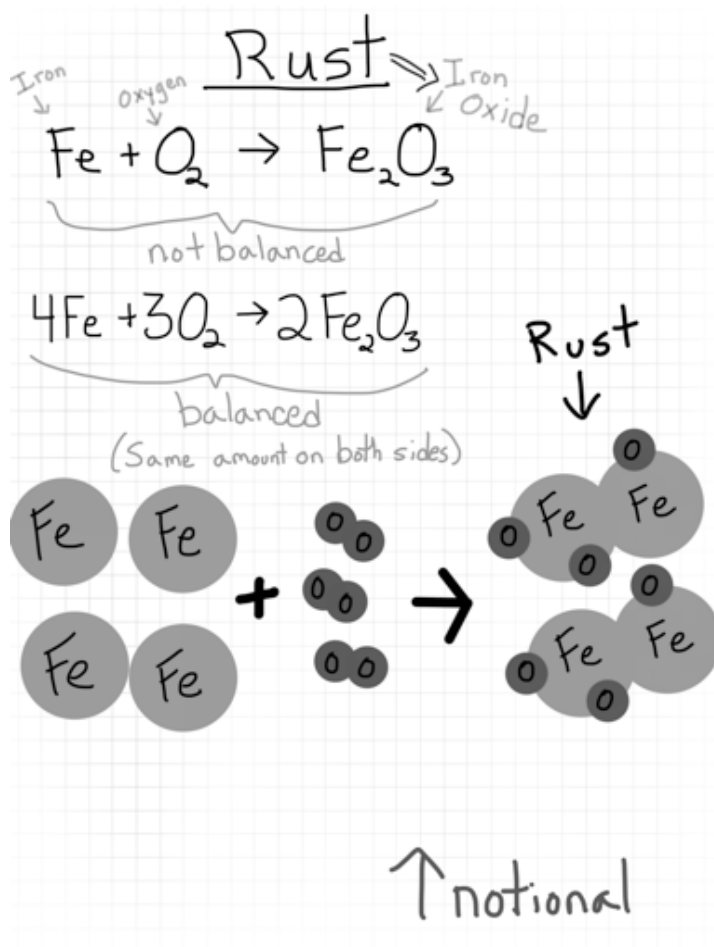 Rust
Iron
Oxide
Iron
Oxygen
Fe + O₂ → Fe₂O₃
not balanced
4Fe + 3O₂ → 2Fe₂O₃
balanced
(Same amount on both sides)
Rust
Fe Fe
Fe Fe
+
O O
O O
O O
→
Fe Fe O O O
Fe Fe O O O
↑ notional